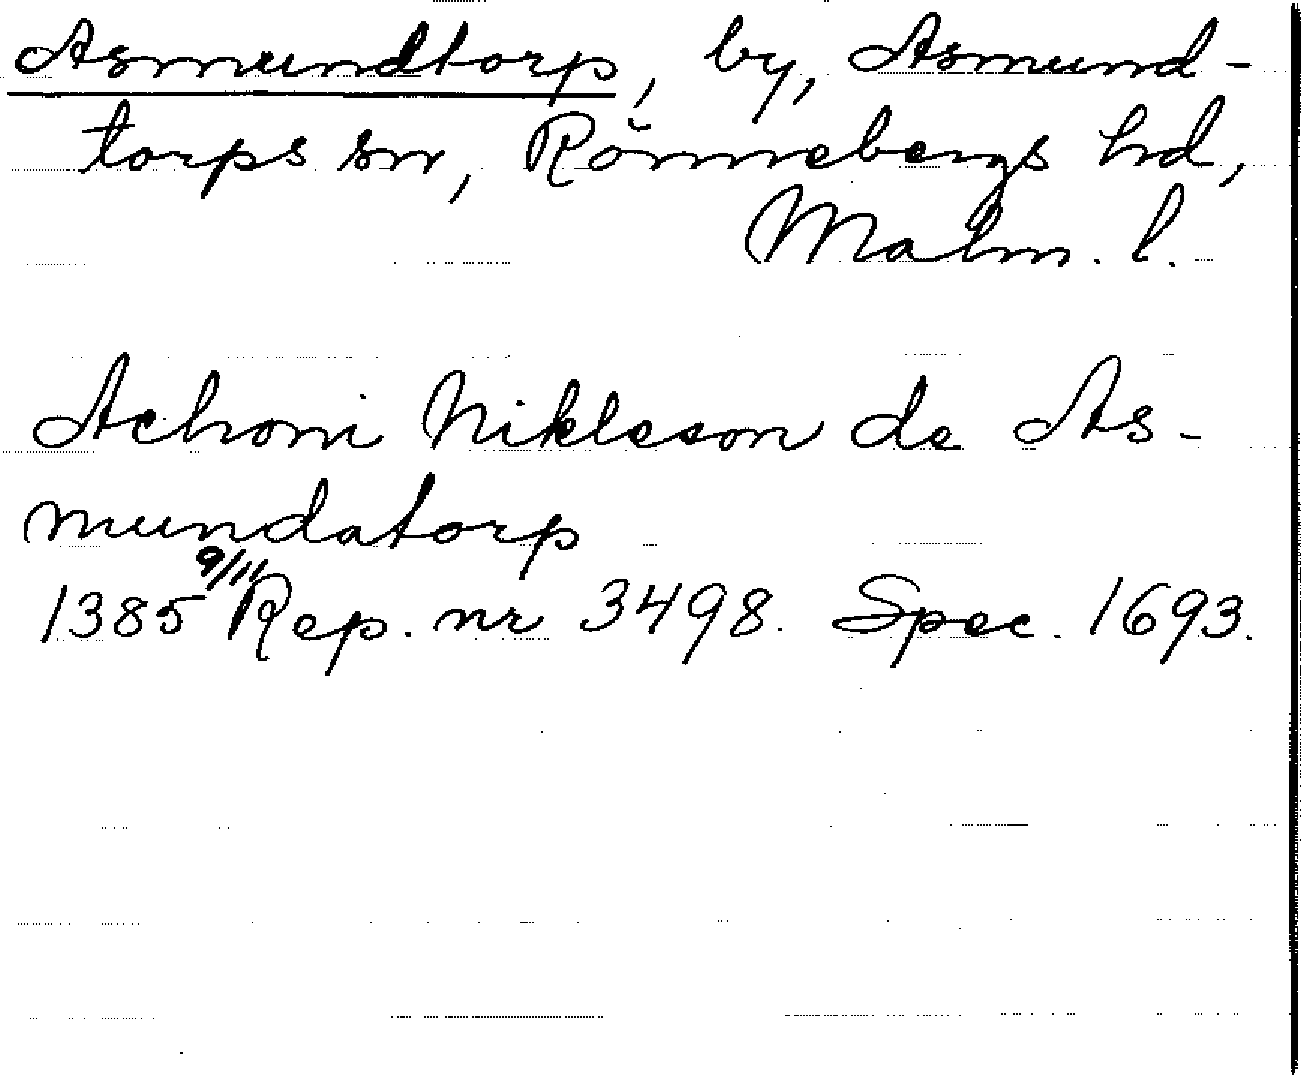 Asmundtorp, by, Asmund-
torps sn, Rönnebergs hd,
Malm. l.
Achoni Nikleson de As-
mundatorp
1385 9/11 Rep. nr 3498. Spec. 1693.